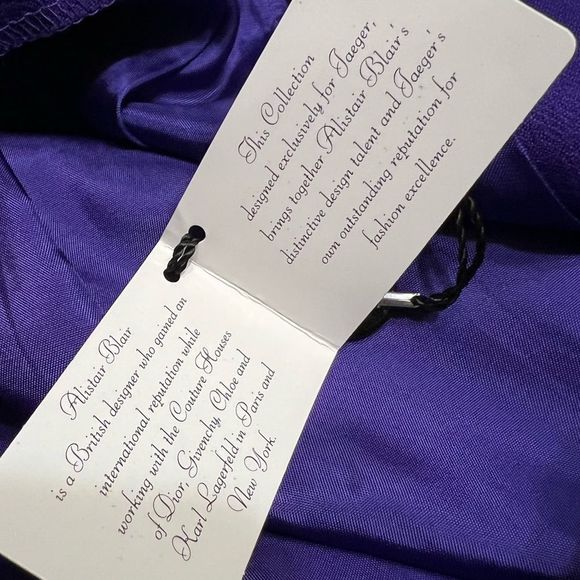 This Collection
designed exclusively for Jaeger,
brings together Alistair Blair's
distinctive design talent and Jaeger's
own outstanding reputation for
fashion excellence.
Alistair Blair
is a British designer who gained an
international reputation while
working with the Couture Houses
of Dior, Givenchy, Chloe and
Karl Lagerfeld in Paris and
New York.